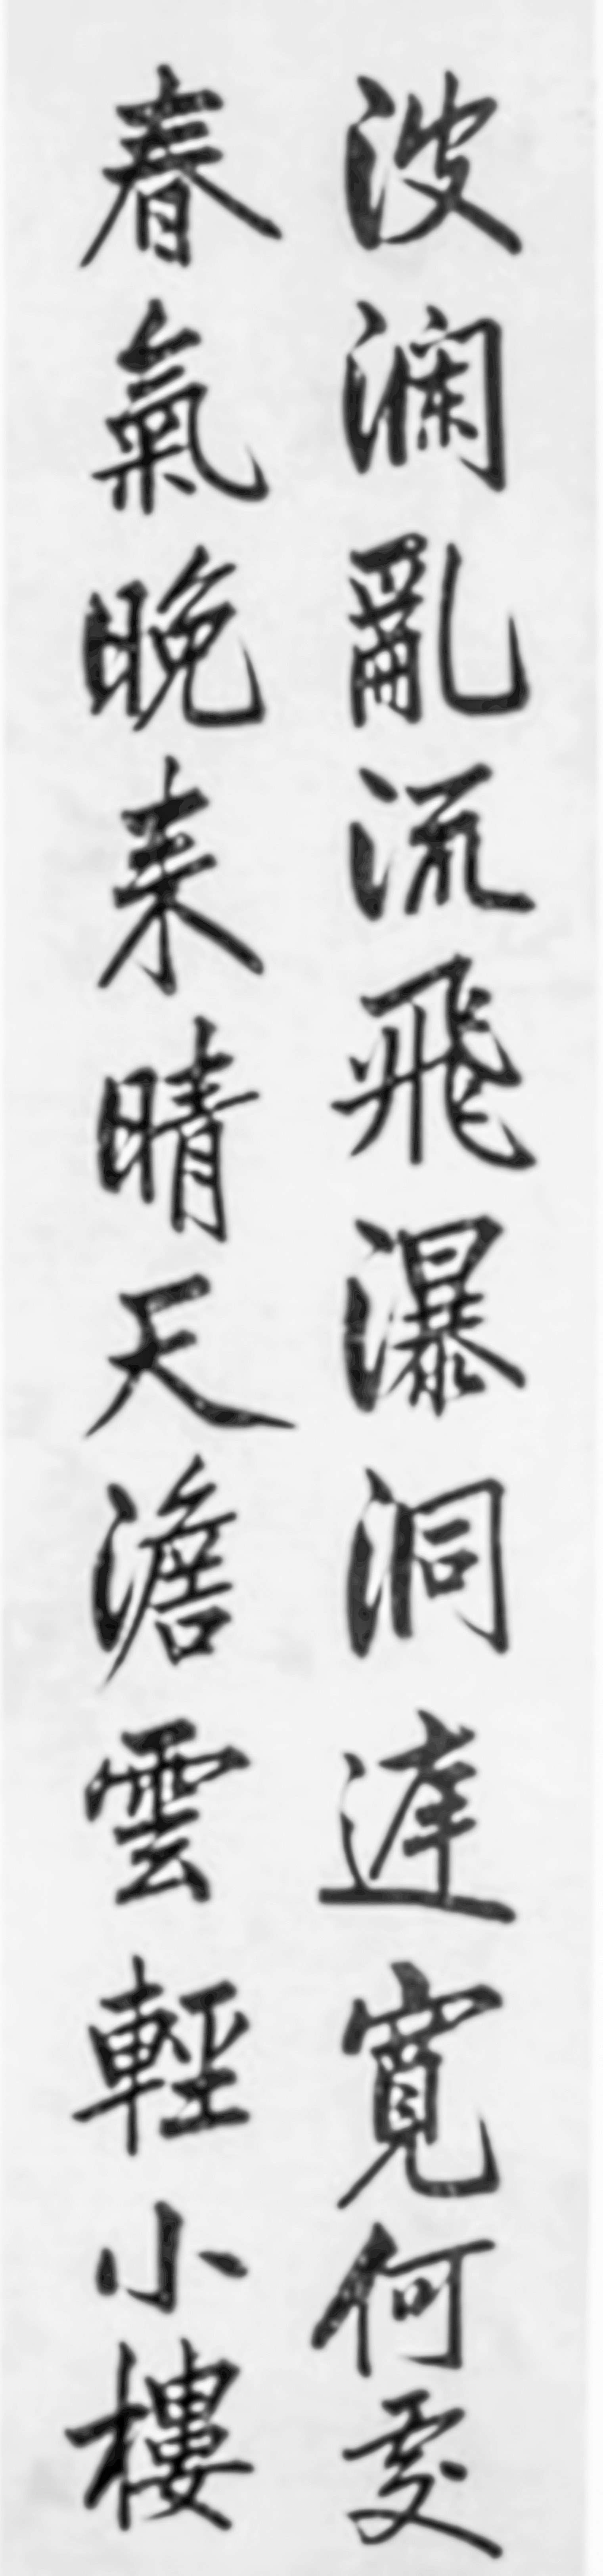 波瀾亂流飛瀑洞達寬何處
春氣晚来晴天澹雲輕小樓